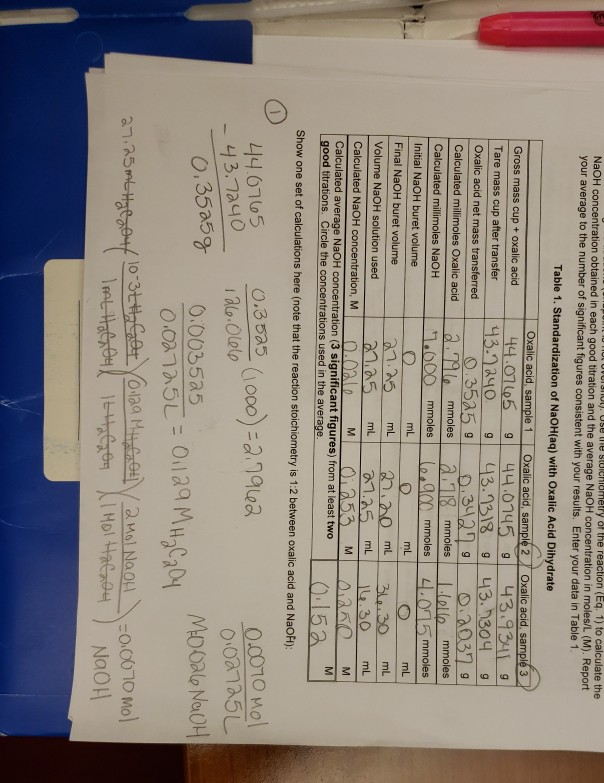 NaOH concentration obtained in each good titration and the average NaOH concentration in moles/L (M). Report
your average to the number of significant figures consistent with your results. Enter your data in Table 1.
Table 1. Standardization of NaOH(aq) with Oxalic Acid Dihydrate
Oxalic acid, sample 1 Oxalic acid, sample 2 Oxalic acid, sample 3
Gross mass cup + oxalic acid 44.0765 g 44.0745 g 43.9341 g
Tare mass cup after transfer 43.7240 g 43.7318 g 43.7304 g
Oxalic acid net mass transferred 0.3525 g 0.3427 g 0.2037 g
Calculated millimoles Oxalic acid 2.796 mmoles 2.718 mmoles 1.616 mmoles
Calculated millimoles NaOH 7.000 mmoles mmoles 4.075 mmoles
Initial NaOH buret volume 0 mL 0 mL 0 mL
Final NaOH buret volume 27.25 mL mL mL
Volume NaOH solution used 27.25 mL 27.25 mL 16.30 mL
Calculated NaOH concentration, M 0.026 M 0.253 M 0.250 M
Calculated average NaOH concentration (3 significant figures) from at least two
good titrations. Circle the concentrations used in the average. 0.152 M
Show one set of calculations here (note that the reaction stoichiometry is 1:2 between oxalic acid and NaOH):
1
44.0765
- 43.7240
0.3525g
0.3525
126.066
(1000) = 2.7962
0.0070 mol
0.02725L
0.003525
0.02725L
= 0.129 M H2C2O4
M=0.026 NaOH
27.25mL H2C2O4 (10-3 L H2C2O4 / 1mL H2C2O4) (0.129 M H2C2O4 / 1 L H2C2O4) (2 mol NaOH / 1 mol H2C2O4) = 0.0070 mol
NaOH